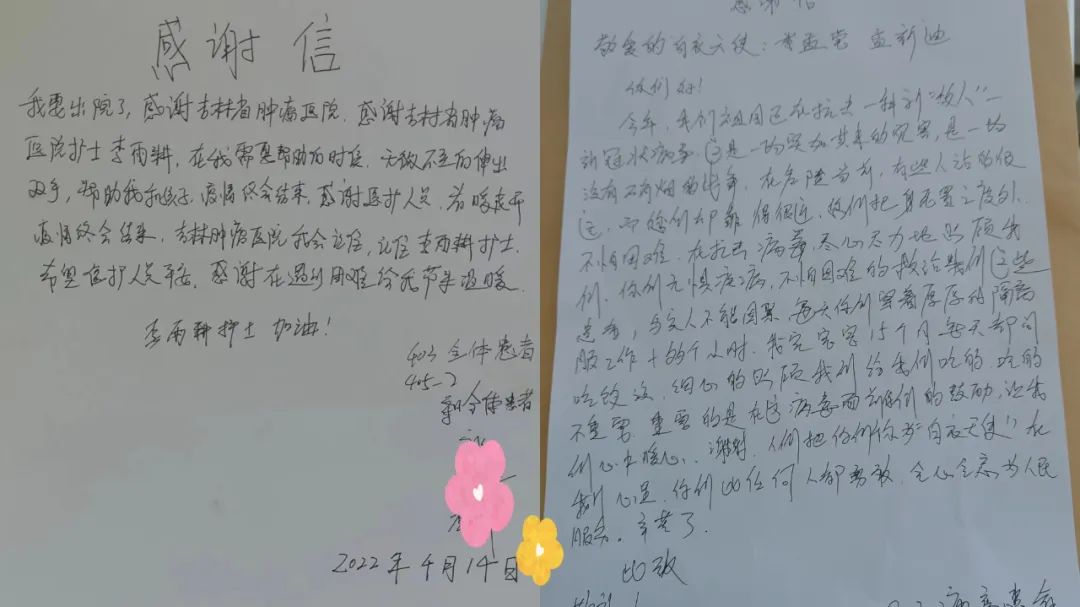 感谢信
我要出院了，感谢吉林省肿瘤医院，感谢吉林省肿瘤
医院护士李雨耕，在我需要帮助的时候，无微不至的伸出
双手，帮助我和孩子，疫情终会结束，感谢医护人员，
疫情终会结束，吉林肿瘤医院我会记住，记住李雨耕护士.
希望医护人员平安，感谢在遇到困难给我带来温暖.
李雨耕护士 加油！
403全体患者
405-2
全体患者
2022年4月14日
感谢信
敬爱的白衣天使：
你们好！
今年，我们祖国还在抗击一种到"敌人"一
新冠状病毒.这是一场突如其来的灾害，是一场
没有硝烟的战争，在危险当前，有些人站的很
远，而您们却靠得很近，你们把身死置之度外.
不怕困难，在抗击病毒，尽心尽力地照顾我
们.你们无惧疫病，不怕困难的救治我们这些
患者，与家人不能团聚.每天你们穿着厚厚的隔离
服工作十个小时.我宝宝15个月每天都问
吃饭没，细心的照顾我们给我们吃的.吃的
不重要.重要的是在这病毒面前你们的鼓励，让我
们心中暖心.谢谢.人们把你们作为"白衣天使"在
我们心里.你们比任何人都勇敢，全心全意为人民
服务。辛苦了.
此致